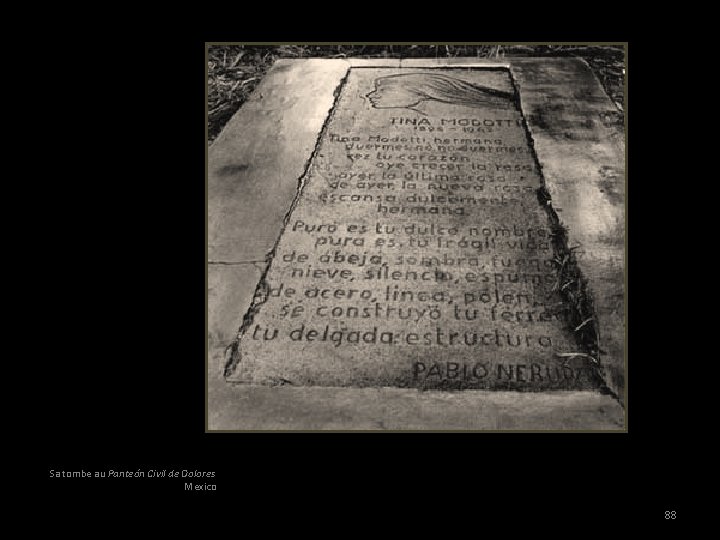 TINA MODOTTI
1896 - 1942
Tina Modotti, hermana
duermes no no duermes
vez tu corazon
oye crecer la rosa
ayer la última rosa
de ayer, la nueva rosa
escansa dulcemente
hermana.
Puro es tu dulce nombre
pura es, tu frágil vida
de abeja, sombra, fuego
nieve, silencio, espuma
de acero, linea, polen,
se construyó tu ferrea
tu delgada estructura
PABLO NERUDA
Sa tombe au Panteón Civil de Dolores
Mexico
88